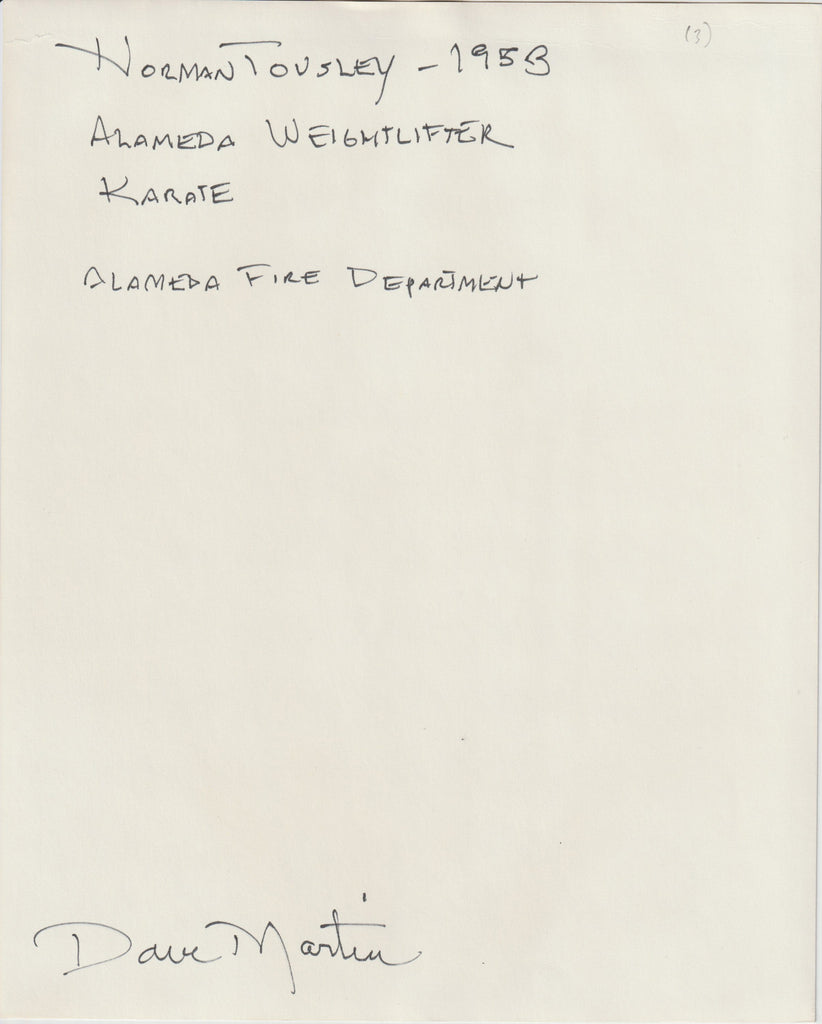 (3)
Norman Tousley - 1953
Alameda Weightlifter
Karate
Alameda Fire Department
Dave Martin